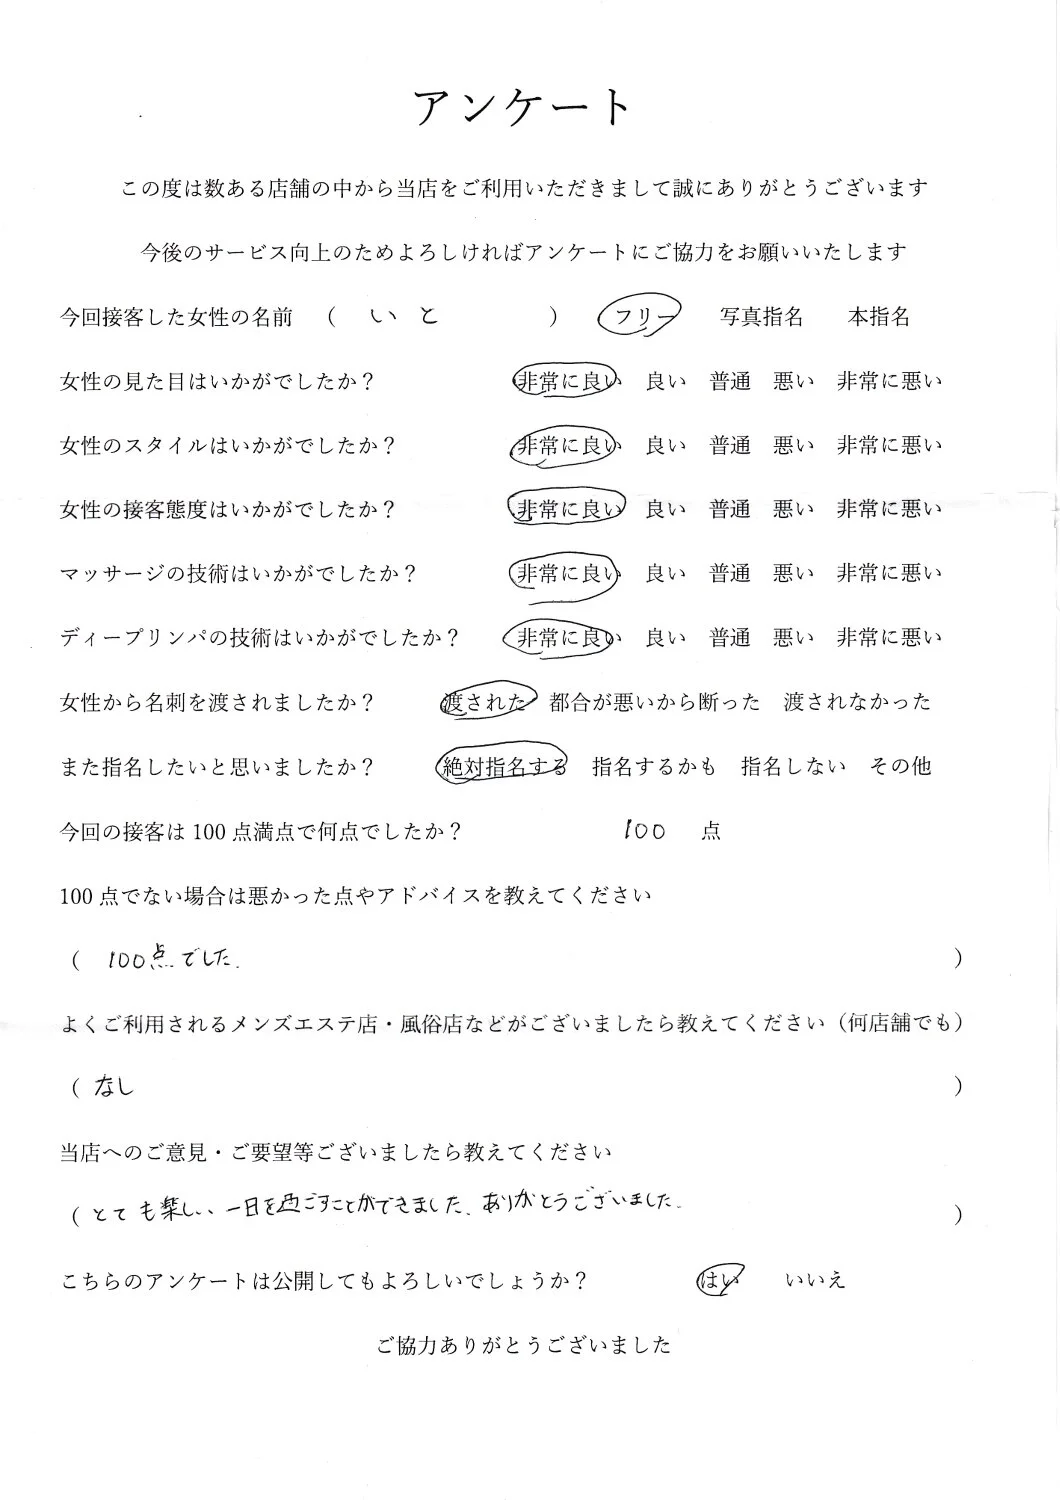 アンケート
この度は数ある店舗の中から当店をご利用いただきまして誠にありがとうございます
今後のサービス向上のためよろしければアンケートにご協力をお願いいたします
今回接客した女性の名前 ( いと ) フリー 写真指名 本指名
女性の見た目はいかがでしたか? 非常に良い 良い 普通 悪い 非常に悪い
女性のスタイルはいかがでしたか? 非常に良い 良い 普通 悪い 非常に悪い
女性の接客態度はいかがでしたか? 非常に良い 良い 普通 悪い 非常に悪い
マッサージの技術はいかがでしたか? 非常に良い 良い 普通 悪い 非常に悪い
ディープリンパの技術はいかがでしたか? 非常に良い 良い 普通 悪い 非常に悪い
女性から名刺を渡されましたか? 渡された 都合が悪いから断った 渡されなかった
また指名したいと思いましたか? 絶対指名する 指名するかも 指名しない その他
今回の接客は 100 点満点で何点でしたか? 100 点
100 点でない場合は悪かった点やアドバイスを教えてください
( 100点でした. )
よくご利用されるメンズエステ店・風俗店などがございましたら教えてください(何店舗でも)
( なし )
当店へのご意見・ご要望等ございましたら教えてください
( とても楽しい、一日を過ごすことができました、ありがとうございました. )
こちらのアンケートは公開してもよろしいでしょうか? はい いいえ
ご協力ありがとうございました